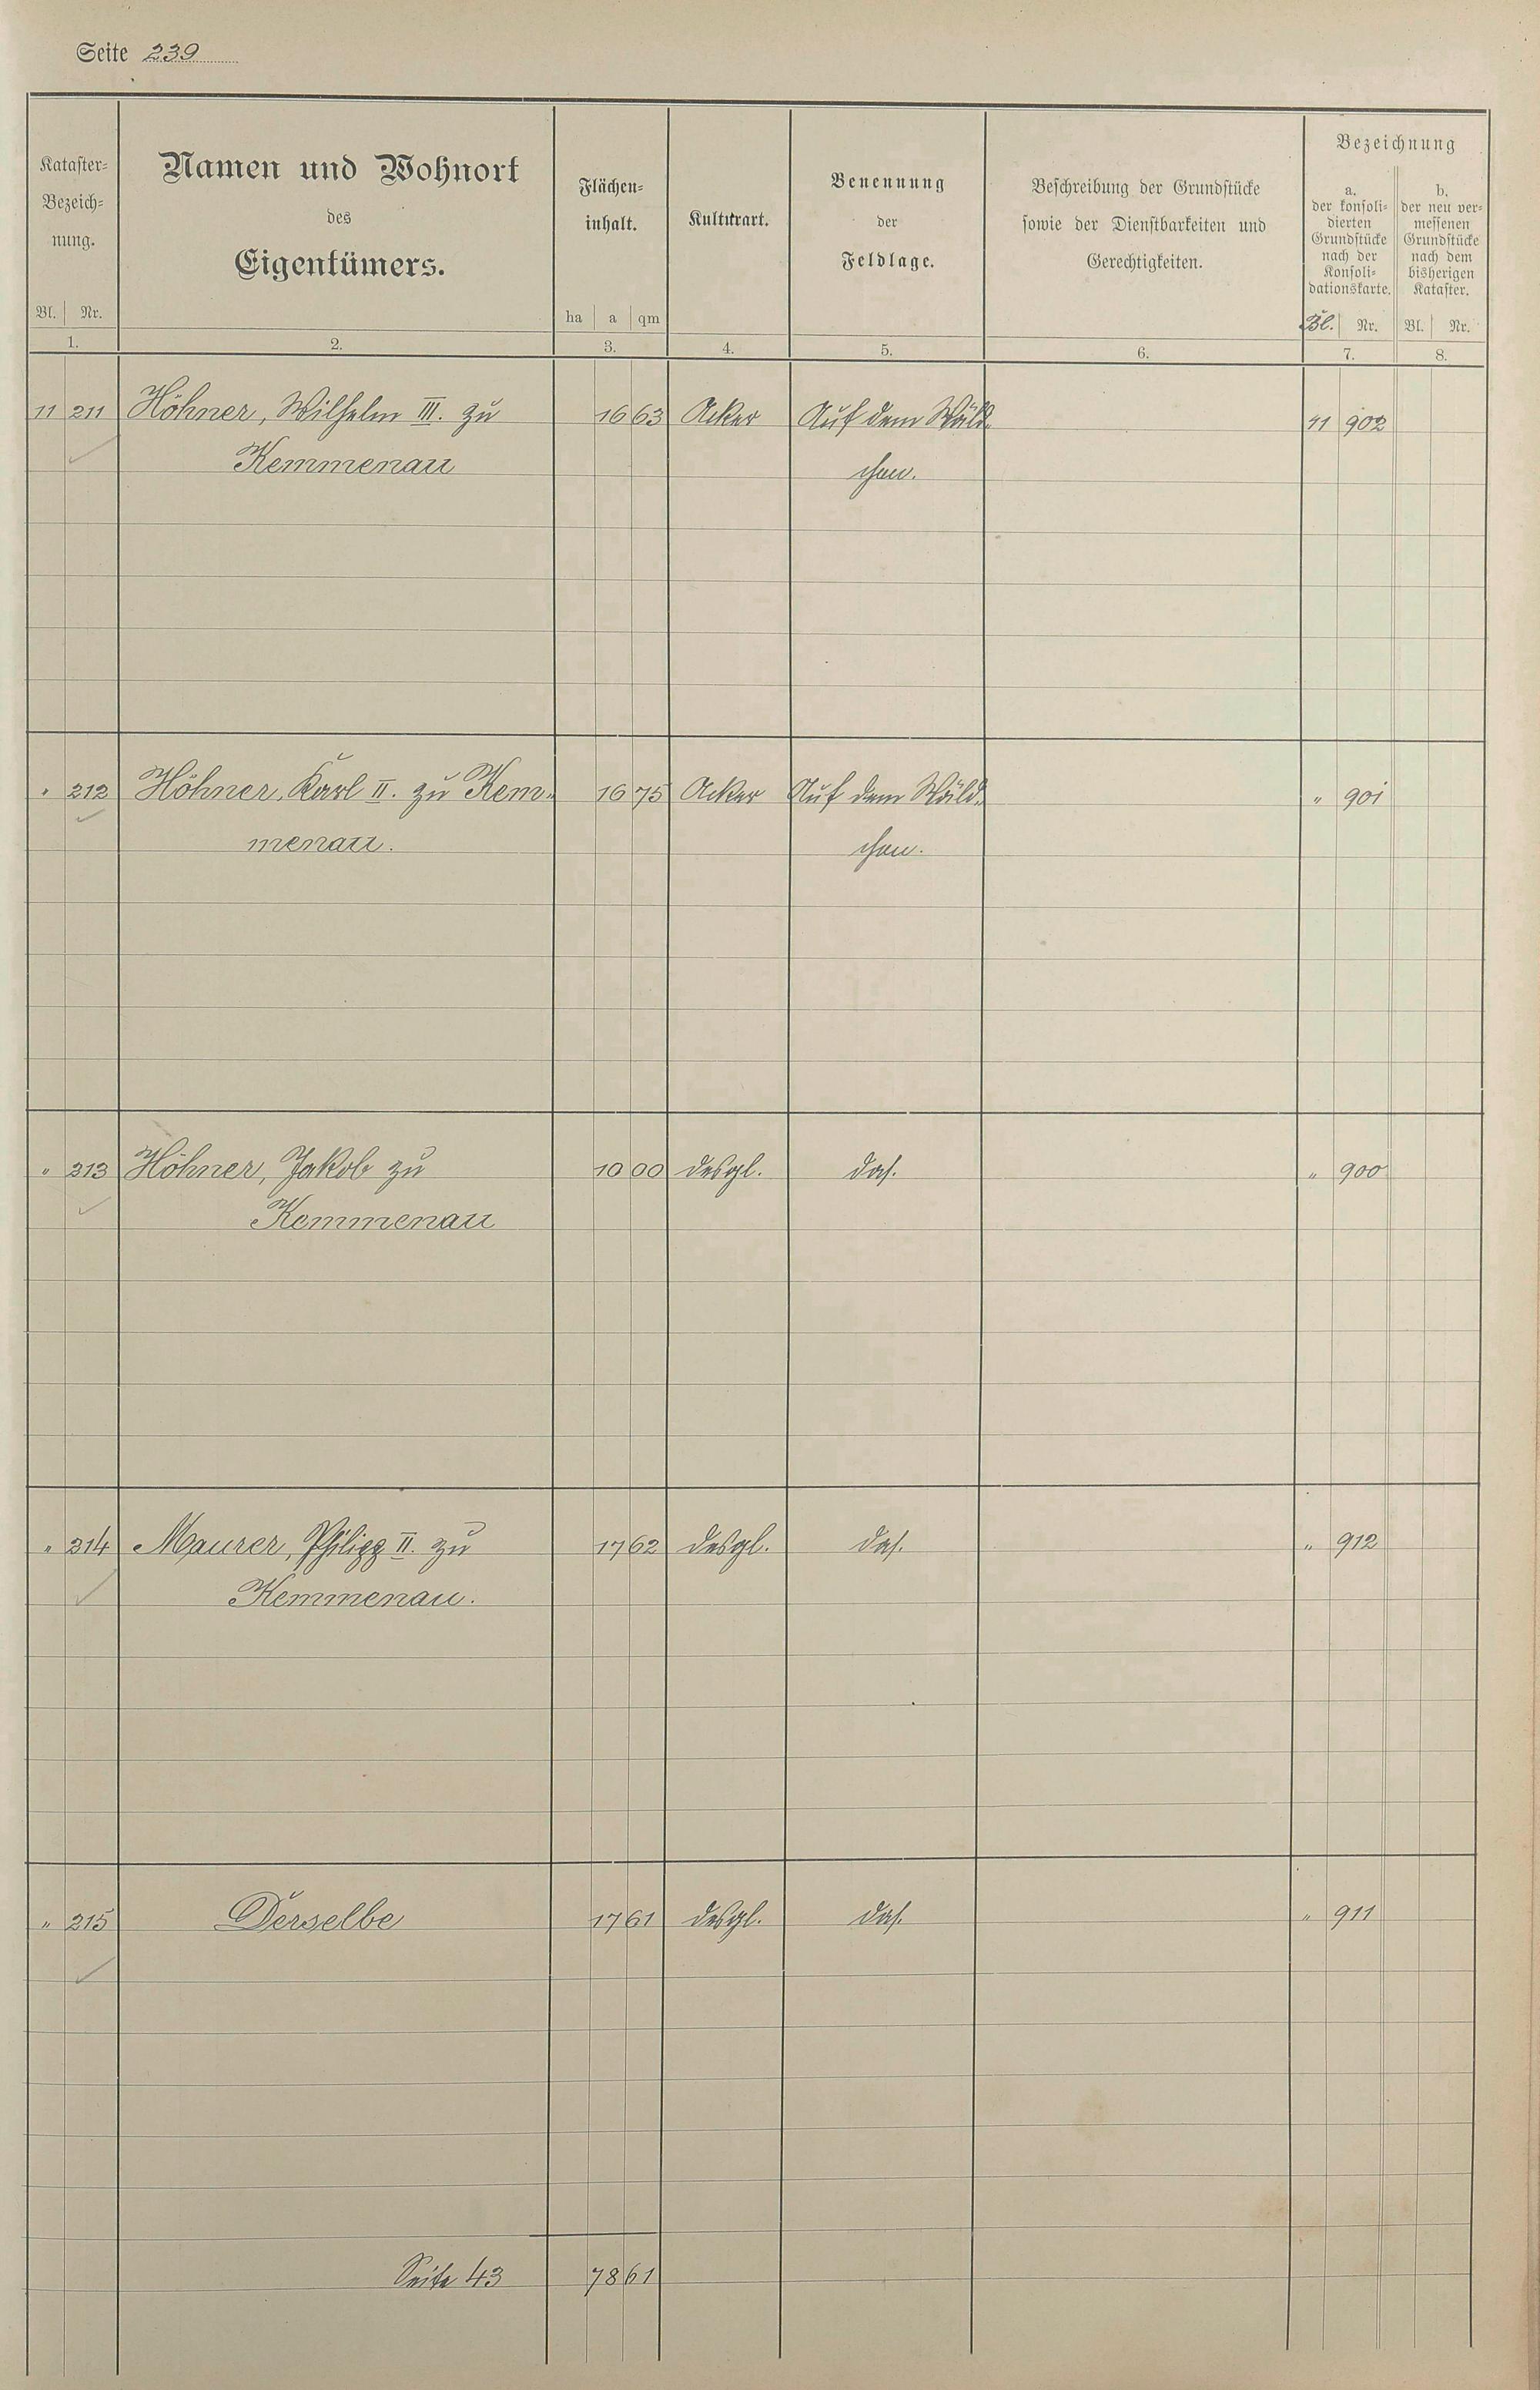 Seite 239
Kataster-
Bezeich-
nung.
Bl. Nr.
1.
Namen und Wohnort
des
Eigentümers.
2.
Flächen-
inhalt.
ha a qm
3.
Kulturart.
4.
Benennung
der
Feldlage.
5.
Beschreibung der Grundstücke
sowie der Dienstbarkeiten und
Gerechtigkeiten.
6.
Bezeichnung
a.
der konsoli-
dierten
Grundstücke
nach der
Konsoli-
dationskarte.
Bl. Nr.
7.
b.
der neu ver-
messenen
Grundstücke
nach dem
bisherigen
Kataster.
Bl. Nr.
8.
11 211 Höhner, Wilhelm III. zu 16 63 Acker Auf dem Wäld- 11 902
Kemmenau chen.
" 212 Höhner, Karl II. zu Kem- 16 75 Acker Auf dem Wäld- " 901
menau. chen.
" 213 Höhner, Jakob zu 10 00 desgl. das. " 900
Kemmenau
" 214 Maurer, Philipp II. zu 17 62 desgl. das. " 912
Kemmenau.
" 215 Derselbe 17 61 desgl. das. " 911
Seite 43 78 61